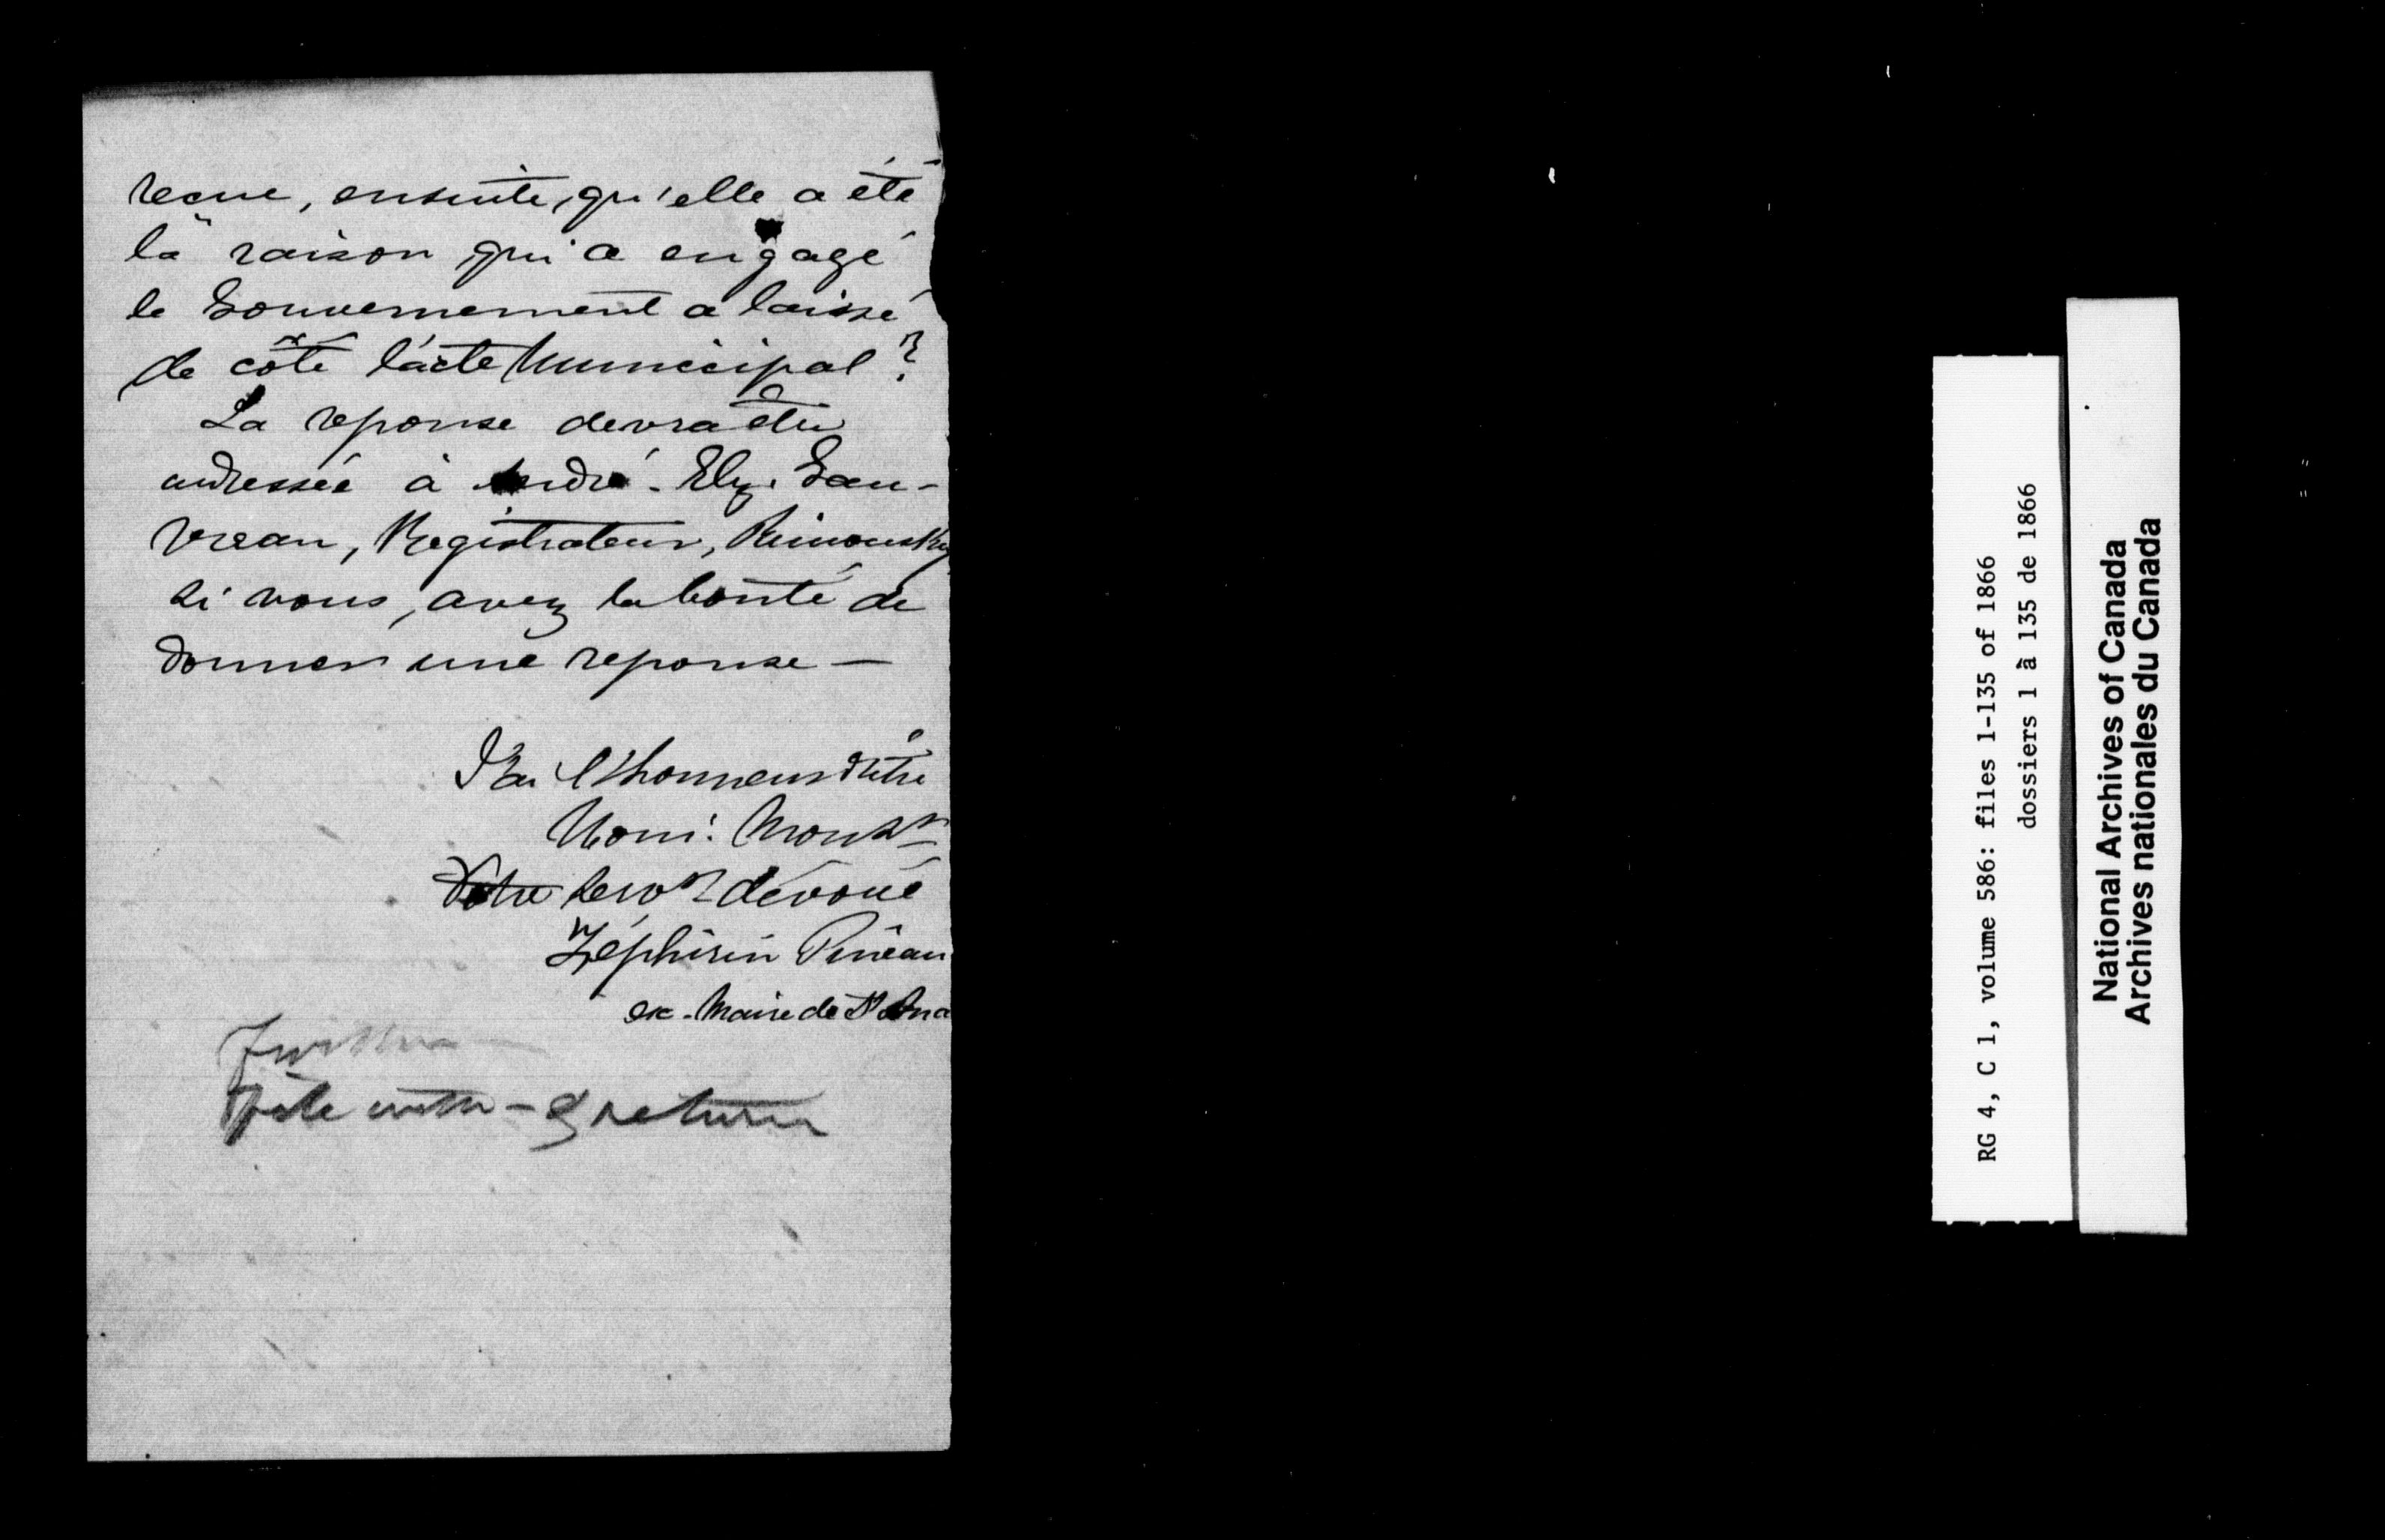 recue, ensuite, qu'elle a été
la raison qui a engagé
le Gouvernement a laissé
de côté l'acte Municipal?
La reponse devra être
adressée à André. Elz. Gau-
vreau, Registrateur, Rimousky
si vous, avez la bonté de
donner une reponse —
J'ai l'honneur d'être
Monsr
Votre servt dévoué
Zéphirin Pineau
ex-Maire de St Ana
File with - & return
RG 4, C 1, volume 586: files 1-135 of 1866
dossiers 1 à 135 de 1866
National Archives of Canada
Archives nationales du Canada